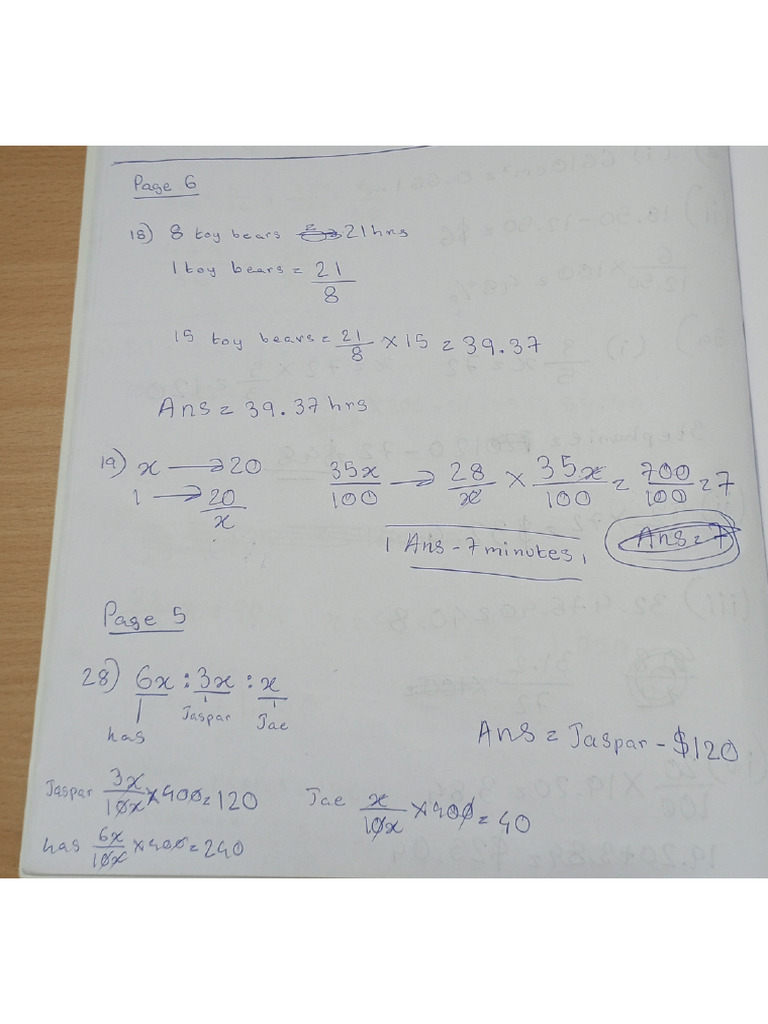 Page 6
18) 8 toy bears = 21hrs
1 toy bears = 21/8
15 toy bears = 21/8 × 15 = 39.37
Ans = 39.37 hrs
19) x → 20
1 → 20/x
35x/100 → 28/x × 35x/100 = 700/100 = 7
Ans - 7 minutes
Ans = 7
Page 5
28) 6x : 3x : x
has Jaspar Jae
Ans = Jaspar - $120
Jaspar 3x/10x × 400 = 120
Jae x/10x × 400 = 40
has 6x/10x × 400 = 240